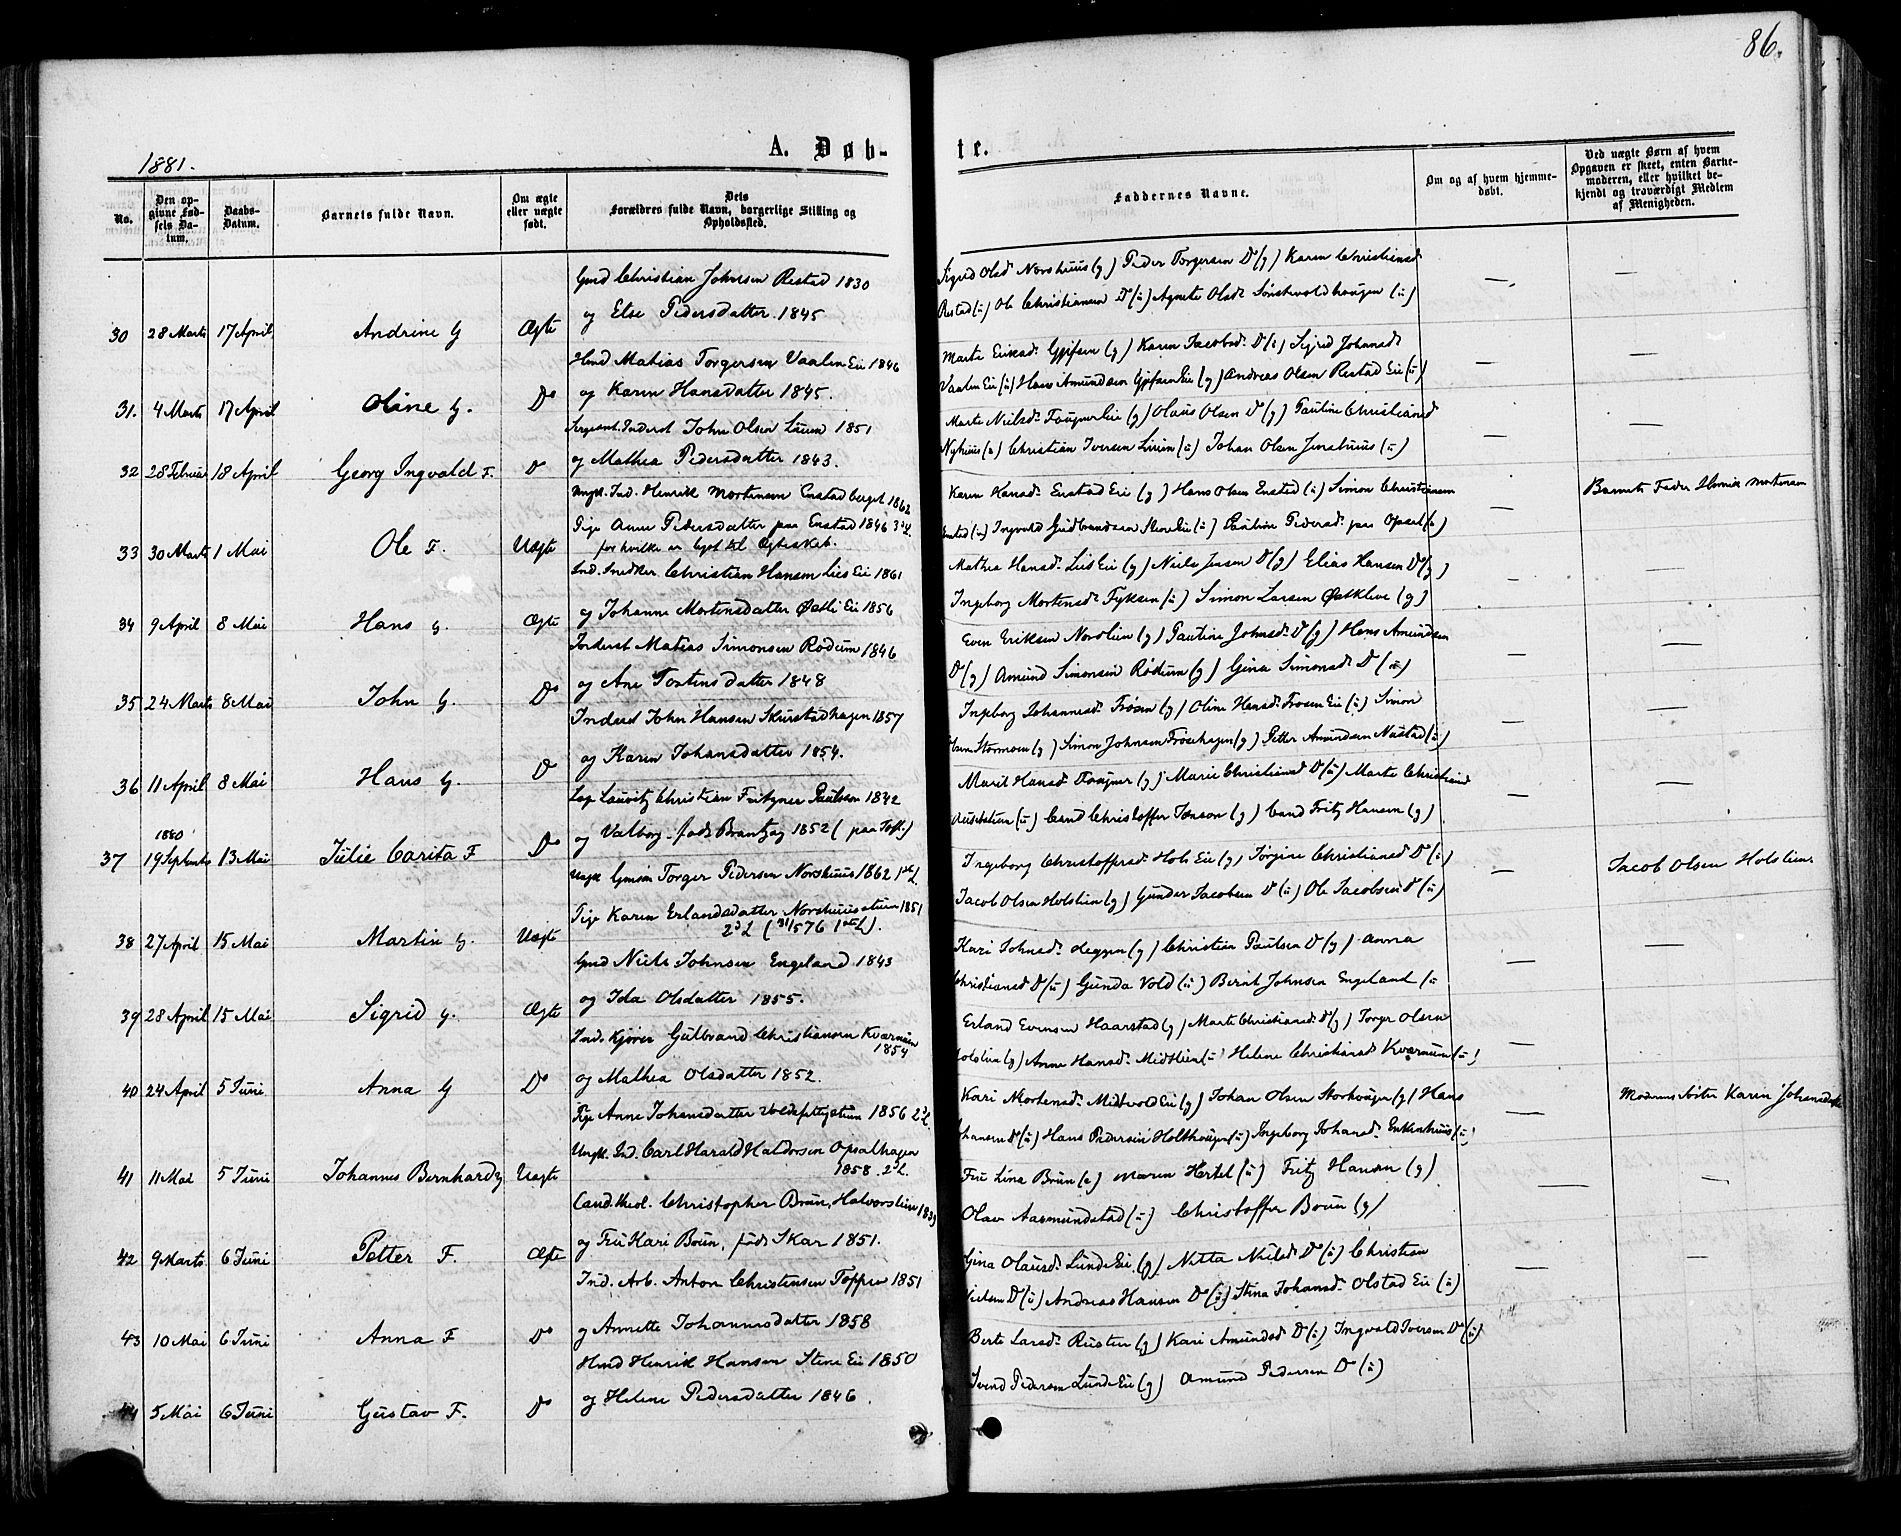 86.
1881.
A. Døb-
te.
No.
Den op-
givne Fød-
sels Da-
tum.
Daabs-
Datum.
Barnets fulde Navn.
Om ægte
eller uægte
født.
Dets
Forældres fulde Navn, borgerlige Stilling og
Opholdssted.
Faddernes Navne.
Om og af hvem hjemme-
døbt.
Ved uægte Børn af hvem
Opgaven er skeet, enten Barne-
moderen, eller hvilket be-
kjendt og troværdigt Medlem
af Menigheden.
Gmd Christian Johnsen Restad 1830
og Else Pedersdatter 1845
30 28 Marts 17 April Andrine G Ægte
Sigrid Olsd Norshuus (g) Peder Torgersen Do (g) Karen Christiansd
Restad (u) Ole Christiansen Do (u) Agnete Olsd.
Hmd Matias Torgersen Vaalen Eie 1846
og Karen Hansdatter 1845.
31. 4 Marts 17 April Oline G. Do
Marte Karen Jacobsd. Do Sigrid Johansd
Vaalen Eie (u) Hans Amundsen (g) Andreas Olsen Restad Eie (u)
Sergeant. Inderst John Olsen 1851
og Mathea Pedersdatter 1843.
32 28 Februar 18 April Georg Ingvald F. Do
Marte Nielsd. (g) Olaus Olsen Do (g) Pauline Christiansd
Nyhuus (u) Christian Iversen (u) Johan Olsen (u)
Ungk. Ind. Henrik Mortensen Enstadberget 1862
Pige Anne Pedersdatter paa Enstad 1846
for hvilke er lyst til Ægteskab.
33 30 Marts 1 Mai Ole F. Uægte
Karen Hansd. Enstad Eie (g) Hans Olsen Enstad (u) Simon Christiansen
Enstad (u) Ingvald Gudbrandsen (u) Pauline Pedersd. paa Opsal (u)
Barnets Fader Henrik Mortensen
Ind. Snedker Christian Hansen Lies Eie 1861
og Johanne Mortensdatter Østli Eie 1856
34 9 April 8 Mai Hans G. Ægte
Mathea Hansd. Lies Eie (g) Niels Jensen Do (g) Elias Hansen Do (g)
Ingeborg Mortensd. (u) Simon Larsen (g)
Inderst Matias Simonsen Rødum 1846
og Ane 1848
35 24 Marts 8 Mai John G. Do
Even Eriksen Nordlien (g) Pauline Johnsd. Do (g) Hans Amundsen
Do (g) Amund Simonsen Rødum (g) Gina Simonsd. Do (u)
Inderst John Hansen Skurstadhagen 1857
og Karen Johansdatter 1854.
36 11 April 8 Mai Hans G. Do
Ingeborg Johannesd. Frøsen (g) Oline Hansd. Frosen Eie (u) Simon
Stormoen (g) Simon Johnsen Frøsehagen (g) Petter Amundsen Nustad (u)
Christian Fritzner Paulsen 1842
og Valborg født 1852 (paa Toft.)
1880
37 19 September 13 Mai Julie Carita F Do
Marit Hansd. (g) Marie Christiansd Do (u) Marte Christiansd
(u) Cand Christoffer Jenson (g) Cand Fritz Hansen (g)
Ungk Torger Pedersen Norshuus 1862 1ste L.
Pige Karen Erlandsdatter Norshuusstuen 1851
38 27 April 15 Mai Martin G. Uægte
Ingeborg Christoffersd. Hols Eie (g) Jørgine Christiansd Do (u)
Jacob Olsen Holslien (g) Gunder Jacobsen Do (u) Ole Jacobsen Do (u)
Jacob Olsen Holslien
Gmd Niels Johnsen Engeland 1843
og Ida Olsdatter 1855.
39 28 April 15 Mai Sigrid G. Ægte
Kari Johnsd. (g) Christian Paulsen Do (g) Anna
Christiansd Do (u) Gunda Vold (u) Bernt Johnsen Engeland (u
Ind. Gulbrand Christiansen Kværnum
1854
og Mathea Olsdatter 1852.
40 24 April 5 Juni Anna G Do
Erland Evensen Haarstad (g) Marte Christiansd. Do (g) Torger Olsen
Holslien (g) Anne Hansd. Midtlien (u) Helene Christiansd Kværnum (u)
Pige Anne Johansdatter 1856 2d L.
Ungk. Ind. Carl Harald Haldorsen Opsalhagen
1858. 2d L.
41 11 Mai 5 Juni Johannes Bernhard G Uægte
Kari Mortensd. Midtvold Eie (g) Johan Olsen Storhougen (g) Hans
Johansen Do (u) Hans Pedersen Holthougen (u) Ingeborg Johansd. (u)
Moderens søster Karen Johansdatter
Cand. theol. Christopher Brun, Halvorslien 1839
og Fru Kari Brun, født Skar 1851.
42 9 Marts 6 Juni Petter F. Ægte
Fru Lina Brun Maren Hertel (u) Fritz Hansen (g)
Olav Aasmundstad (u) Christoffer Bruun (g)
Ind. Arb. Anton Christensen Toppen 1851
og Annette Johannesdatter 1858
43 10 Mai 6 Juni Anna F Do
Gina Olausd. Lunde Eie. (g) Nielsd Do (u) Christian
Nielsen Do (u) Andreas Hansen Do (g) Stina Johansd. Olstad Eie (u)
Hmd Henrik Hansen Stene Eie 1850
og Helene Pedersdatter 1846.
44 5 Mai 6 Juni Gustav F. Do
Berte Larsd. Rusten (g) Kari Amundsd Do (u) Ingvald Iversen Do (u)
Svend Pedersen Lunde Eie (g) Amund Pedersen Do (u)